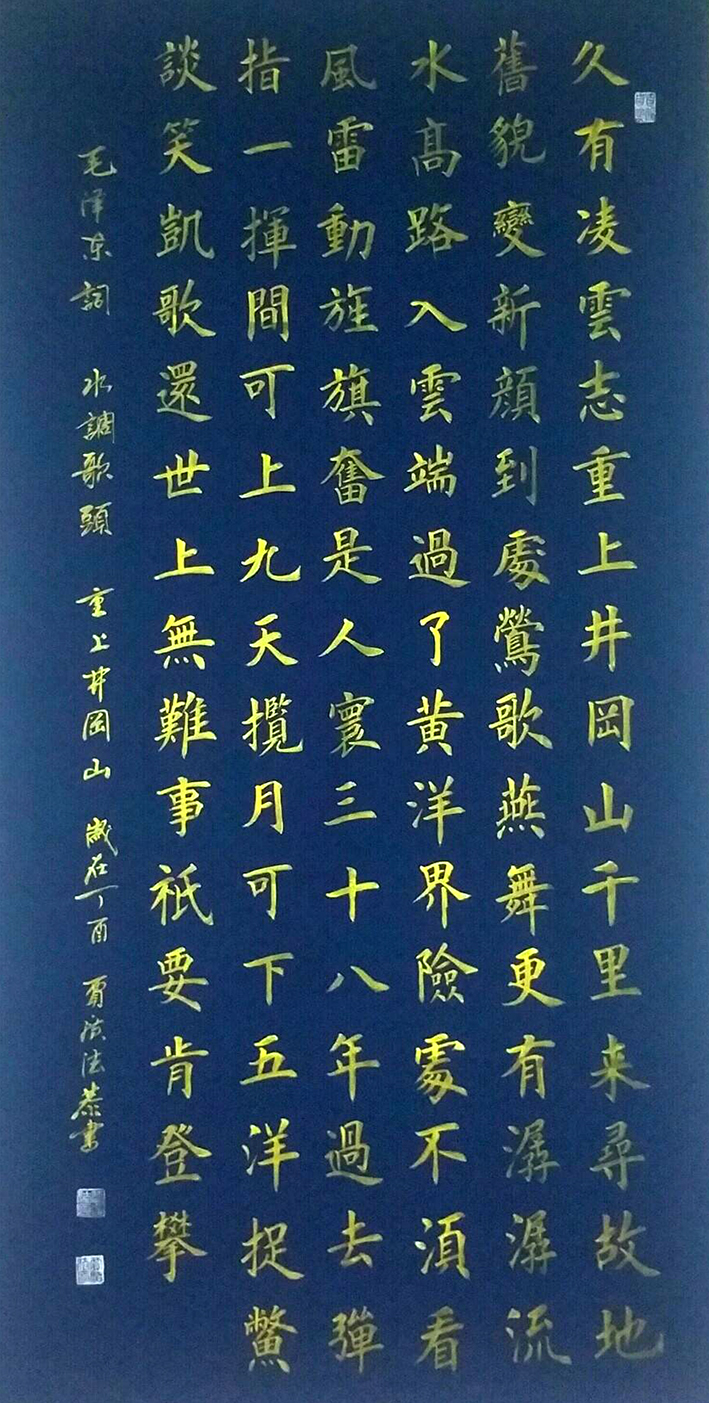 久有凌雲志重上井岡山千里来尋故地
舊貌變新顔到處鶯歌燕舞更有潺潺流
水髙路入雲端過了黄洋界險處不湏看
風雷動旌旗奮是人寰三十八年過去彈
指一揮間可上九天攬月可下五洋捉鱉
談笑凱歌還世上無難事祇要肯登攀
毛泽东詞 水調歌頭 重上井岡山 歲在丁酉 法恭書